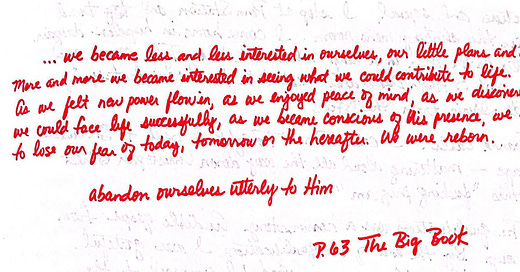 ... we became less and less interested in ourselves, our little plans and
More and more we became interested in seeing what we could contribute to life.
As we felt new power flow in, as we enjoyed peace of mind, as we discovere
we could face life successfully, as we became conscious of His presence, we
to lose our fear of today, tomorrow or the hereafter. We were reborn.
abandon ourselves utterly to Him
P. 63 The Big Book